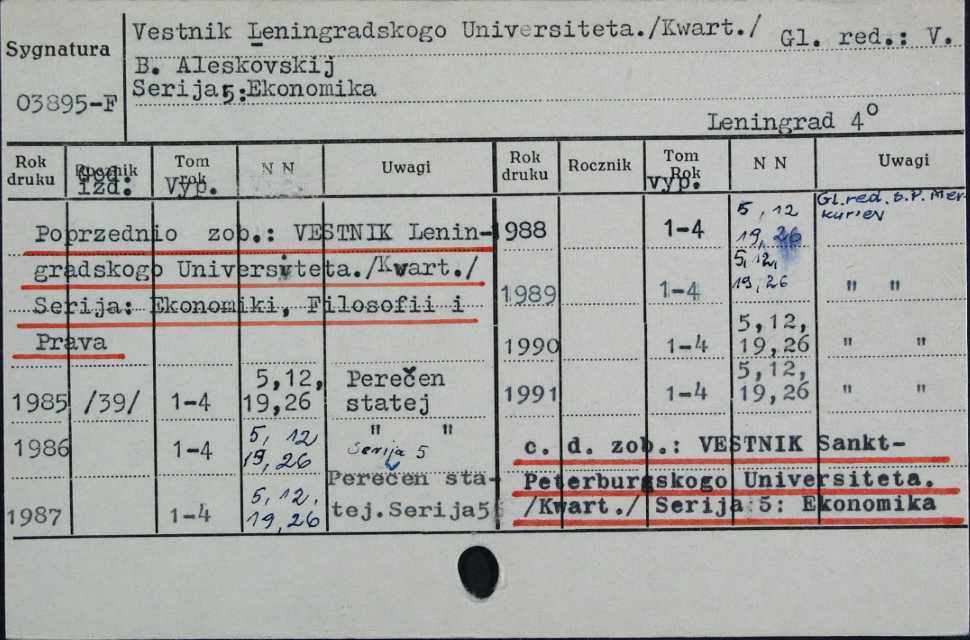 Vestnik Leningradskogo Universiteta./Kwart./ Gl. red.: V.
Sygnatura
B. Aleskovskij
03895-F
Serija 5: Ekonomika
Leningrad 4°
Rok druku
God izd:
Tom rok vyp.
N N
Uwagi
Rok druku
Rocznik
Tom Rok vyp.
N N
Uwagi
Poprzednio zob.: VESTNIK Lenin-
gradskogo Universiteta./Kwart./
Serija: Ekonomiki, Filosofii i
Prava
1985 /39/ 1-4 5,12, 19,26 Perečen statej
1986 1-4 5, 12 19, 26 " " Serija 5
1987 1-4 5, 12. 19, 26 Perečen sta-
tej.Serija5
1988 1-4 5, 12 19, 26 Gl. red. S.P. Mer-
kuriev
1989 1-4 5, 12, 19, 26 " "
1990 1-4 5,12, 19,26 " "
1991 1-4 5,12, 19,26 " "
c. d. zob.: VESTNIK Sankt-
Peterburgskogo Universiteta.
/Kwart./ Serija 5: Ekonomika